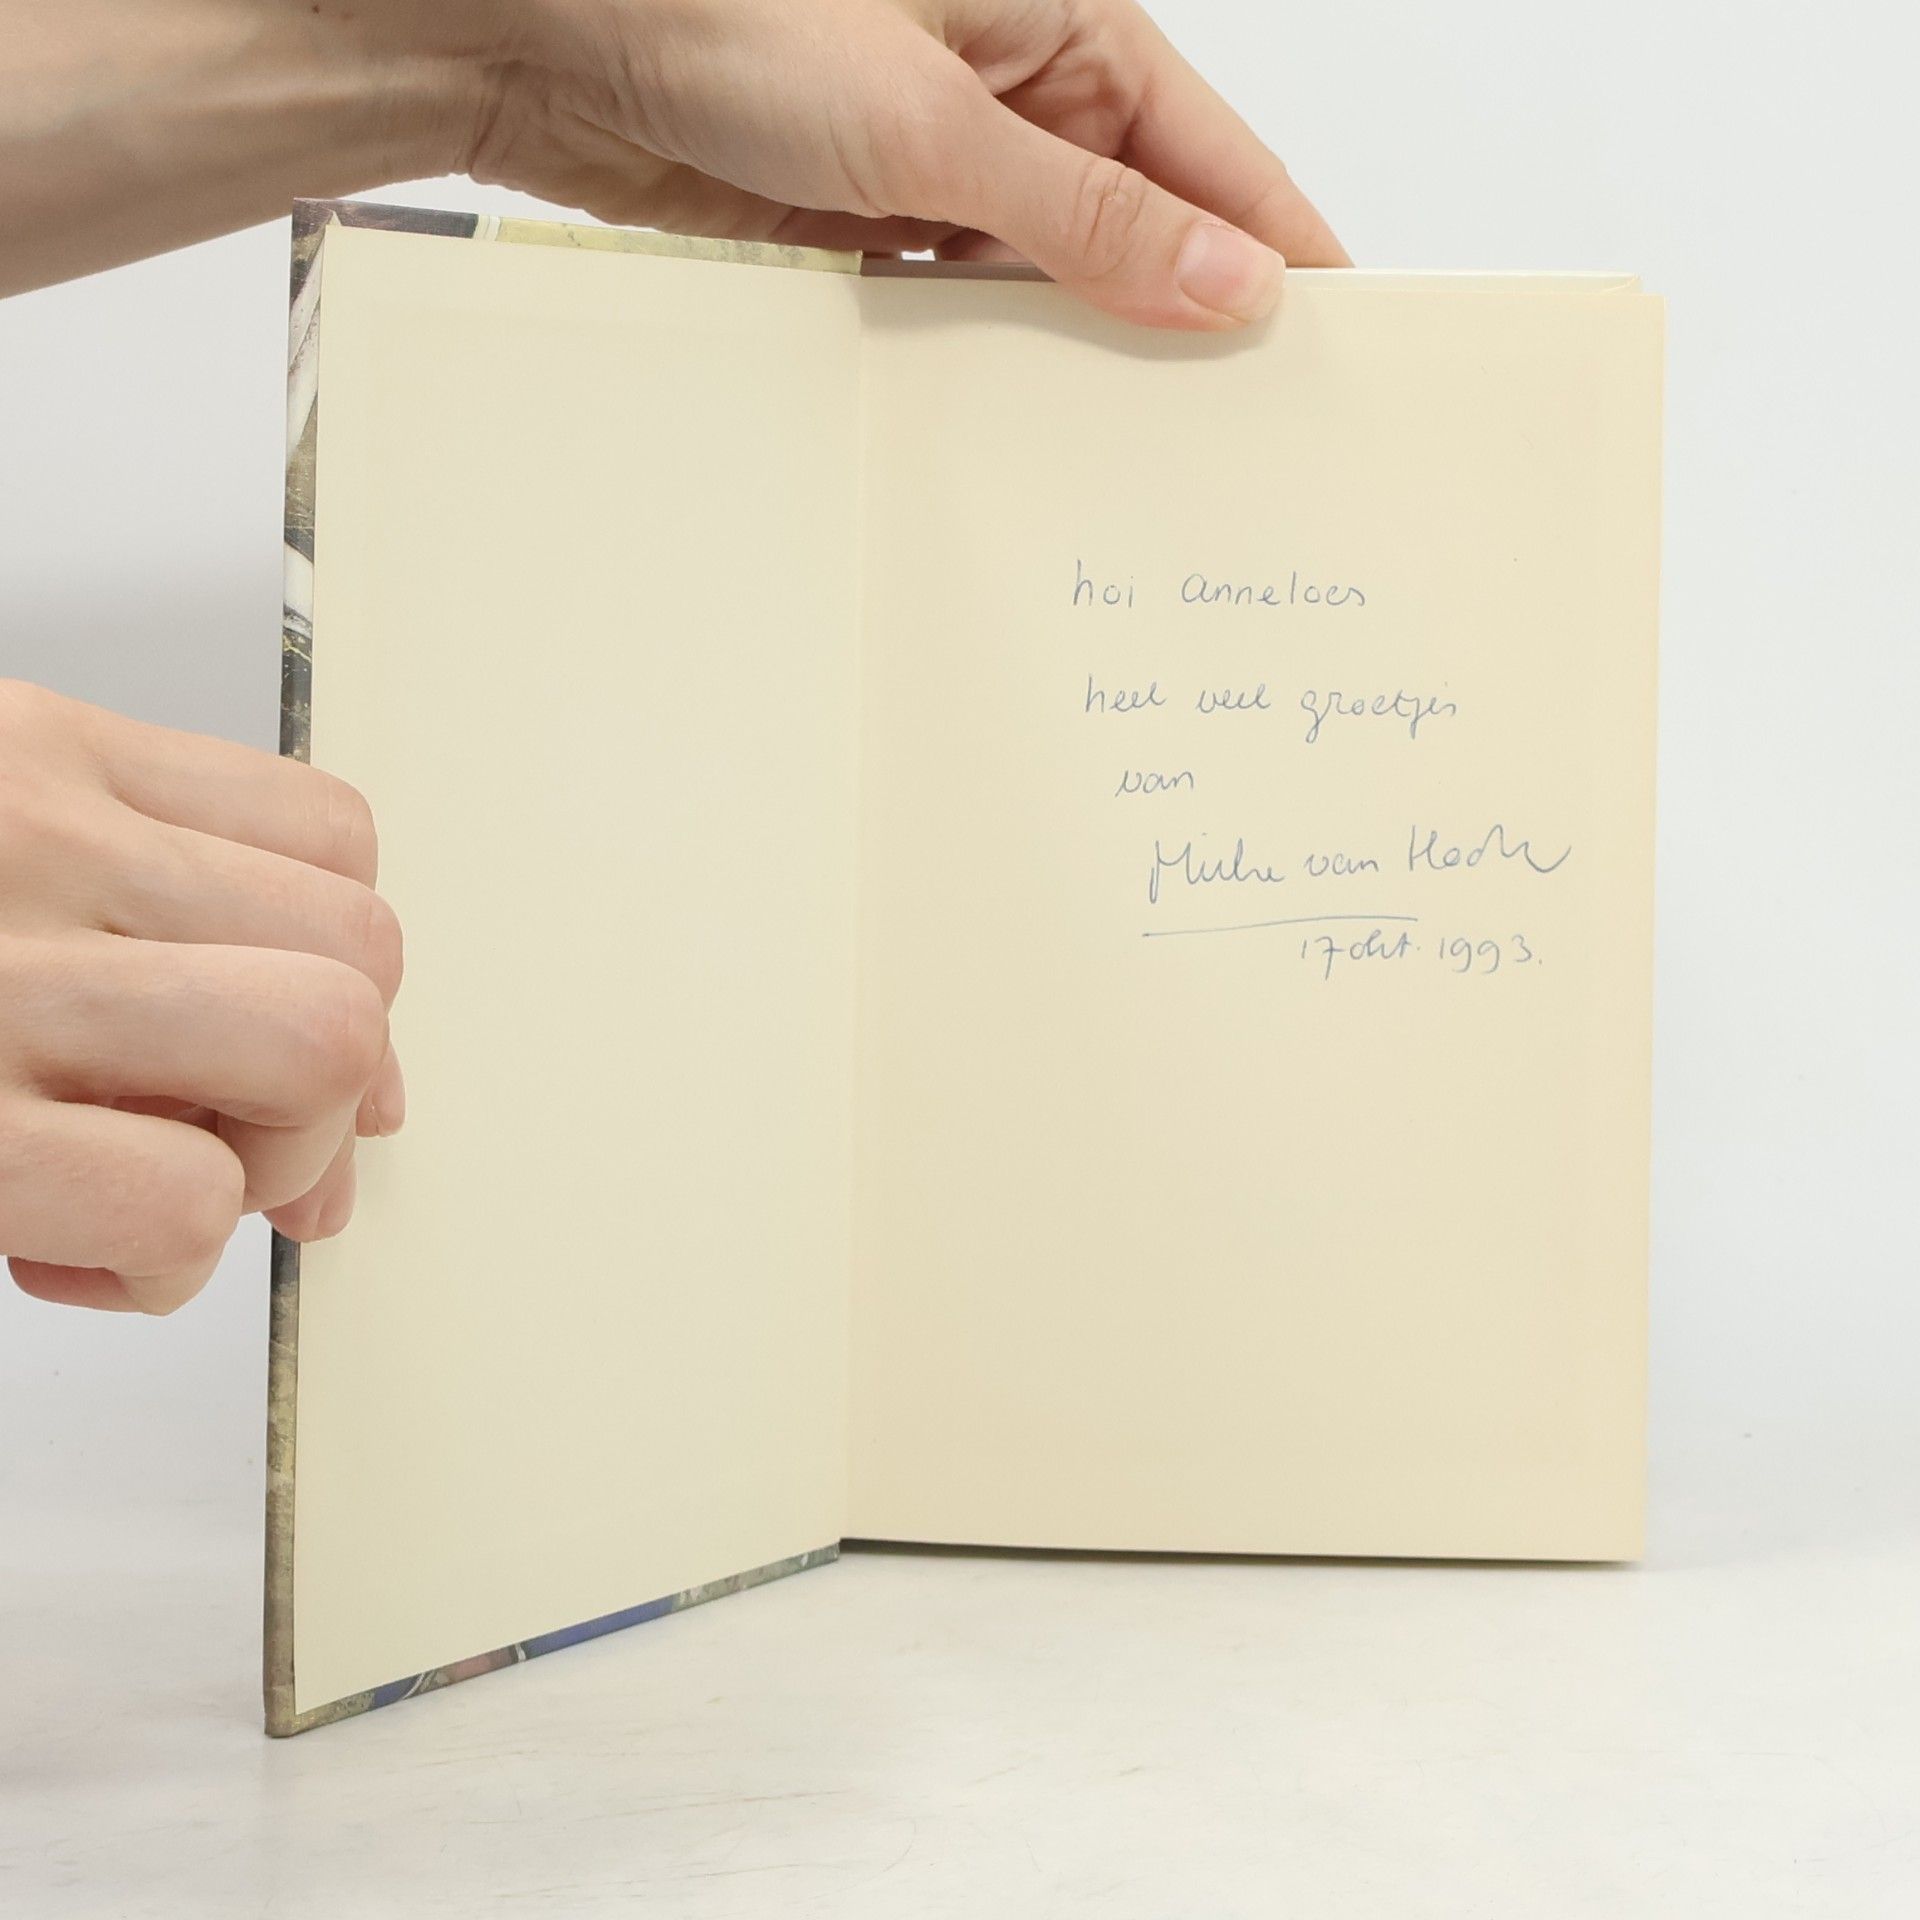 hoi Anneloes
heel veel groetjes
van
Mieke van Hooft
17 okt. 1993.